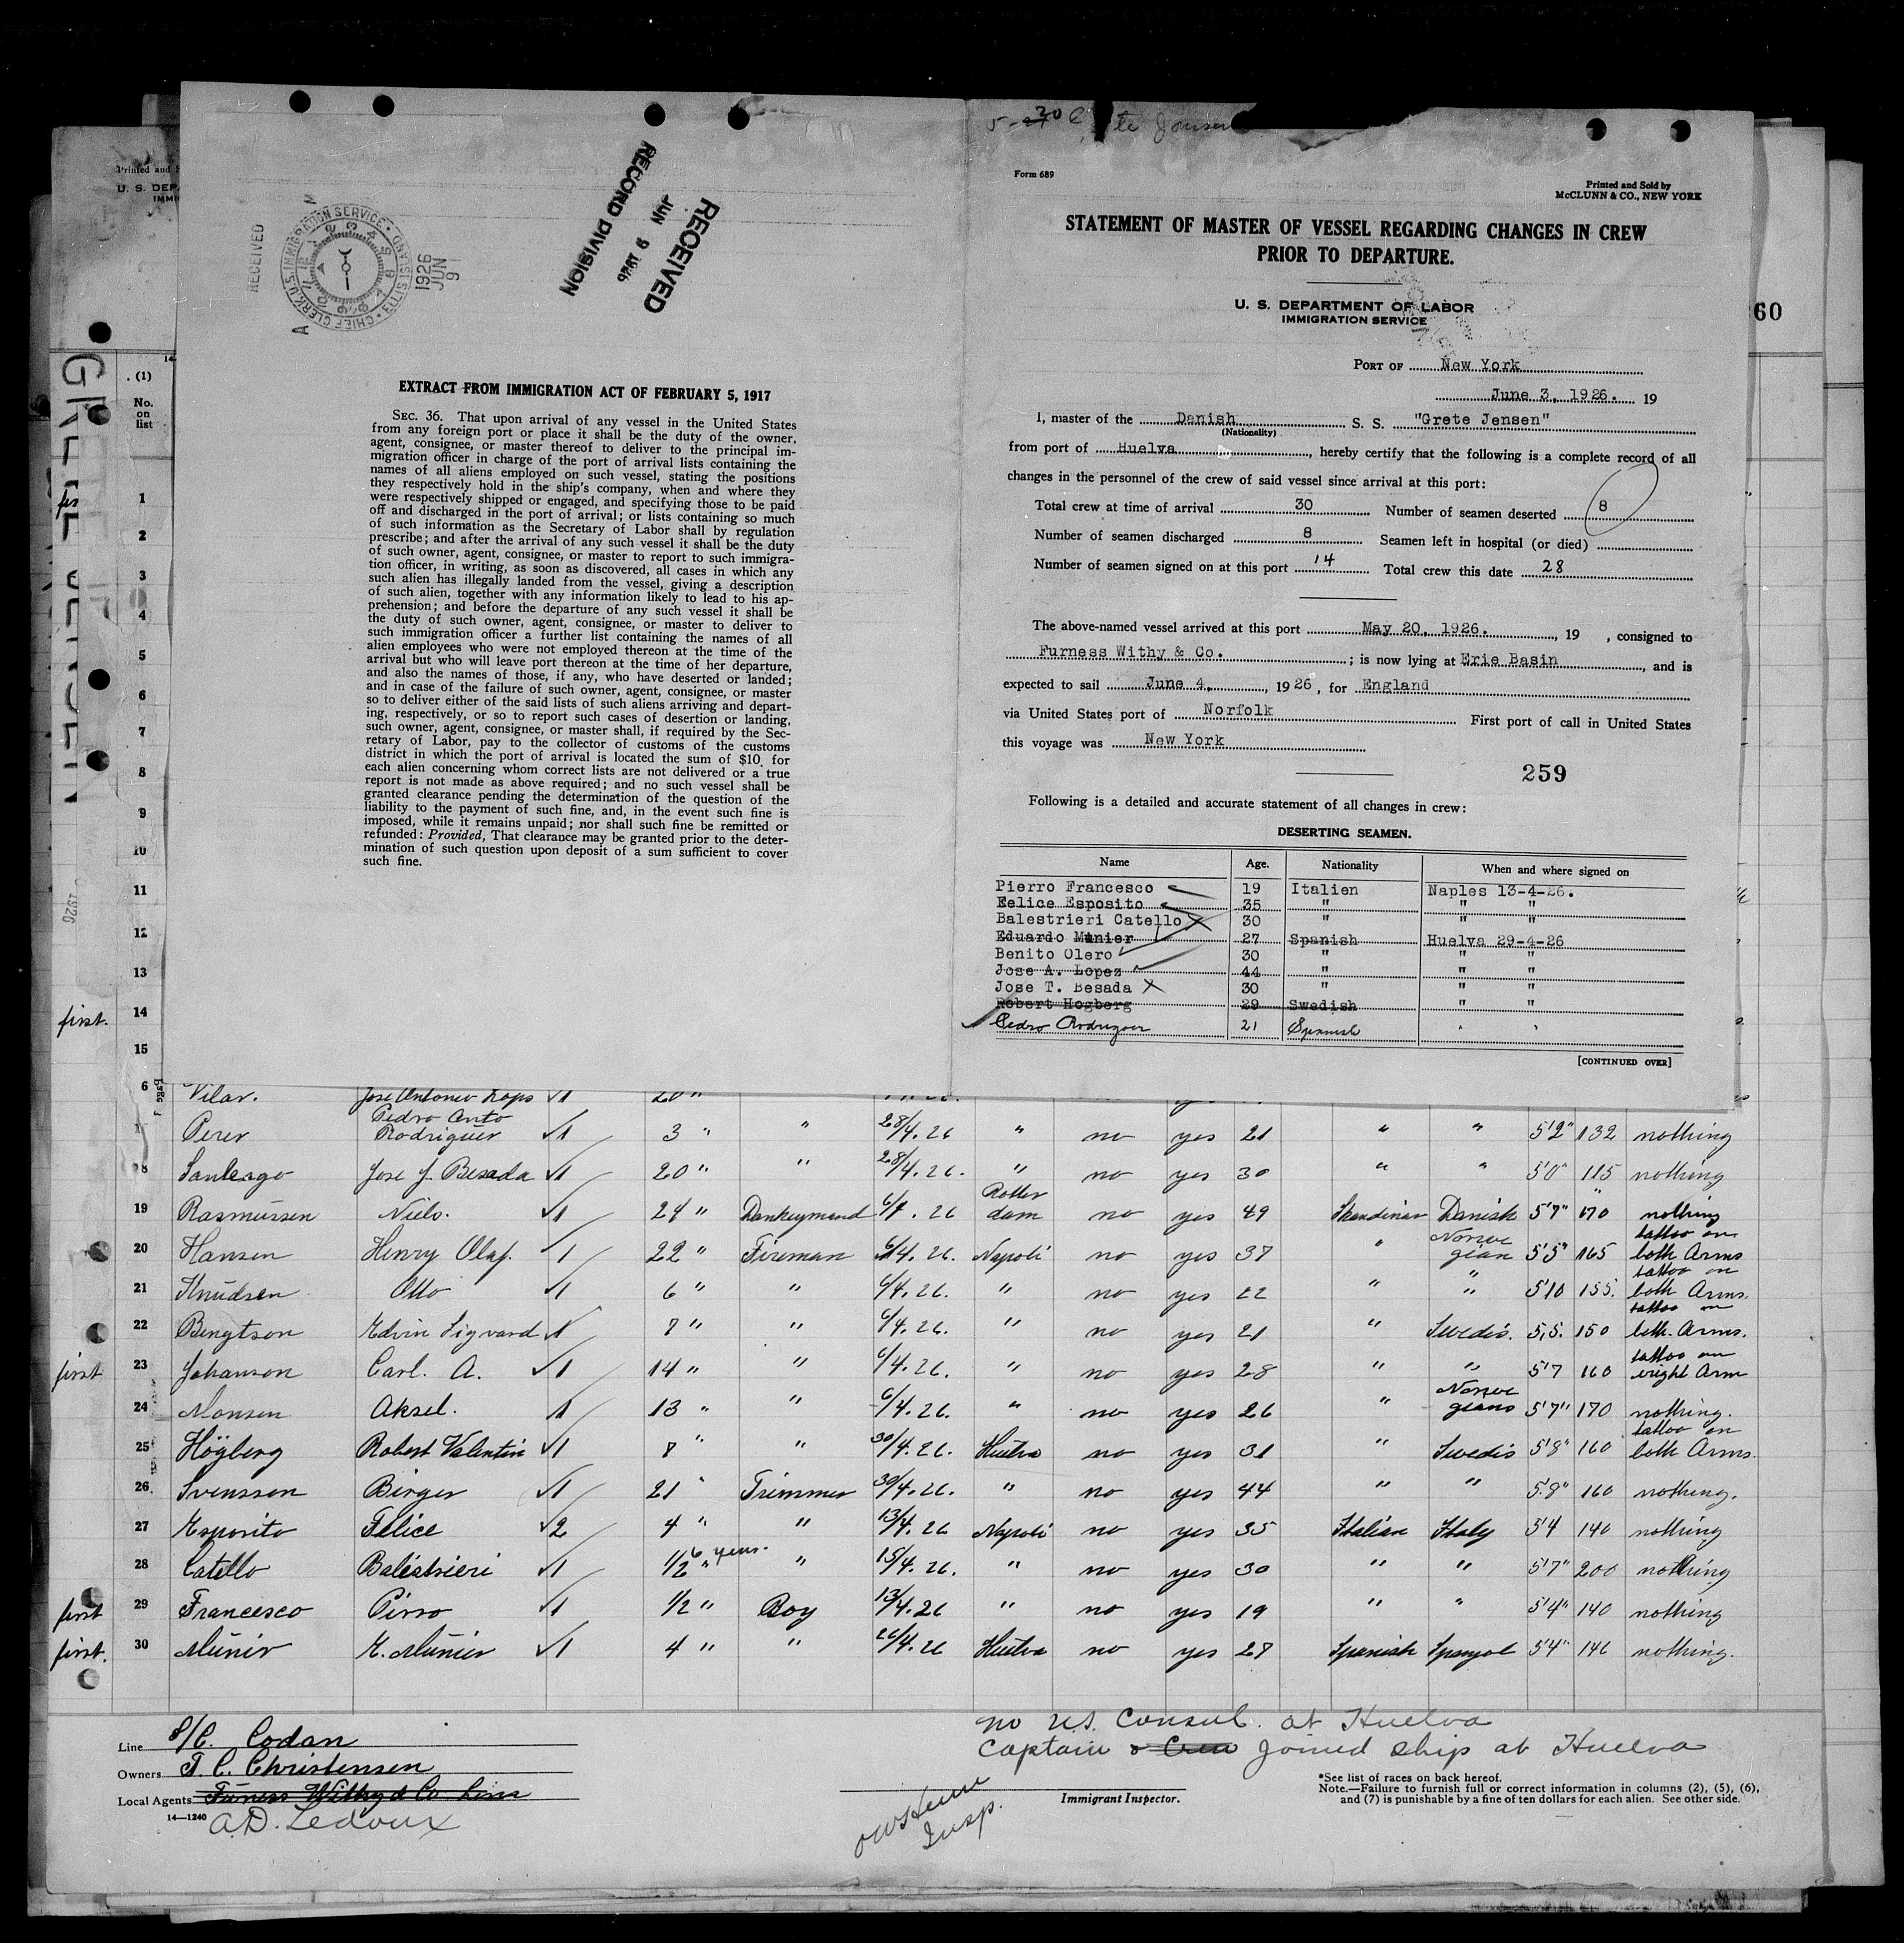 Printed and S
U. S. DEP
IMMI
RECEIVED
CHIEF CLERK U.S. IMMIGRATION SERVICE • ELLIS ISLAND •
1926
JUN
9
RECEIVED
JUN 9 1926
RECORD DIVISION
EXTRACT FROM IMMIGRATION ACT OF FEBRUARY 5, 1917
SEC. 36. That upon arrival of any vessel in the United States
from any foreign port or place it shall be the duty of the owner,
agent, consignee, or master thereof to deliver to the principal im-
migration officer in charge of the port of arrival lists containing the
names of all aliens employed on such vessel, stating the positions
they respectively hold in the ship's company, when and where they
were respectively shipped or engaged, and specifying those to be paid
off and discharged in the port of arrival; or lists containing so much
of such information as the Secretary of Labor shall by regulation
prescribe; and after the arrival of any such vessel it shall be the duty
of such owner, agent, consignee, or master to report to such immigra-
tion officer, in writing, as soon as discovered, all cases in which any
such alien has illegally landed from the vessel, giving a description
of such alien, together with any information likely to lead to his ap-
prehension; and before the departure of any such vessel it shall be
the duty of such owner, agent, consignee, or master to deliver to
such immigration officer a further list containing the names of all
alien employees who were not employed thereon at the time of the
arrival but who will leave port thereon at the time of her departure,
and also the names of those, if any, who have deserted or landed;
and in case of the failure of such owner, agent, consignee, or master
so to deliver either of the said lists of such aliens arriving and depart-
ing, respectively, or so to report such cases of desertion or landing,
such owner, agent, consignee, or master shall, if required by the Sec-
retary of Labor, pay to the collector of customs of the customs
district in which the port of arrival is located the sum of $10 for
each alien concerning whom correct lists are not delivered or a true
report is not made as above required; and no such vessel shall be
granted clearance pending the determination of the question of the
liability to the payment of such fine, and, in the event such fine is
imposed, while it remains unpaid; nor shall such fine be remitted or
refunded: Provided, That clearance may be granted prior to the deter-
mination of such question upon deposit of a sum sufficient to cover
such fine.
Form 689
Printed and Sold by
McCLUNN & CO., NEW YORK
STATEMENT OF MASTER OF VESSEL REGARDING CHANGES IN CREW
PRIOR TO DEPARTURE.
U. S. DEPARTMENT OF LABOR
IMMIGRATION SERVICE
60
PORT OF New York
June 3, 1926. 19
I, master of the Danish S. S. "Grete Jensen"
(Nationality)
from port of Huelva, hereby certify that the following is a complete record of all
changes in the personnel of the crew of said vessel since arrival at this port:
Total crew at time of arrival 30 Number of seamen deserted 8
Number of seamen discharged 8 Seamen left in hospital (or died)
Number of seamen signed on at this port 14 Total crew this date 28
The above-named vessel arrived at this port May 20, 1926., 19 , consigned to
Furness Withy & Co. ; is now lying at Erie Basin, and is
expected to sail June 4, , 19 26, for England
via United States port of Norfolk First port of call in United States
this voyage was New York
259
Following is a detailed and accurate statement of all changes in crew:
DESERTING SEAMEN.
Name Age. Nationality When and where signed on
Pierro Francesco 19 Italien Naples 13-4-26.
Felice Esposito 35 " " "
Balestrieri Catello 30 " " "
Eduardo Munier 27 Spanish Huelva 29-4-26
Benito Olero 30 " " "
Jose A. Lopez 44 " " "
Jose T. Besada 30 " " "
Robert Hogberg 29 Swedish " "
Pedro Rodriguez 21 Spanish " "
[CONTINUED OVER]
(1)
No.
on
list
1
2
3
4
5
6
7
8
9
10
11
12
13
first. 14
15
6 Vilar. Jose Antonio Lops √1 20 "
Perer Pedro Anto Rodriguer √1 3 " " 28/4.26 " no yes 21 " " 5'2" 132 nothing
18 Santiago Jose J. Besada √1 20 " " 28/4.26. " no yes 30 " " 5'0" 115 nothing
19 Rasmussen Niels. √1 24 " Donkeymand 6/4.26 Rotterdam no yes 49 Skandinav Danish 5'7" 170 nothing
20 Hansen Henry Olaf. √1 22 " Fireman 6/4.26. Napoli no yes 37 " Norwegian 5'5" 165 tattoo on both Arms
21 Knudsen Otto √1 6 " " 6/4.26. " no yes 22 " " 5'10 155. tattoo on both Arms.
22 Bengtson Edvin Sigvard √1 7 " " 6/4.26. " no yes 21 " Swedis. 5,5. 150 tattoo on both Arms.
first 23 Johanson Carl. A. √1 14 " " 6/4.26. " no yes 28 " " 5'7 160 tattoo on wright Arm
24 Monsen Aksel. √1 13 " " 6/4.26. " no yes 26 " Norwegians 5'7" 170 nothing.
25 Högberg Robert Valentin √1 8 " " 30/4.26. Huelva no yes 31 " Swedis 5'8" 160 tattoo on both Arms.
26. Svensson Birger √1 21 " Trimmer 30/4.26. " no yes 44 " " 5.8" 160 nothing.
27 Esposito Felice √2 4 " " 13/4.26 Napoli no yes 35 Italian Italy 5'4 140 nothing
28 Catello Balestrieri √1 1/2 " 6 years. " 15/4.26. " no yes 30 " " 5'7" 200 nothing
first 29 Francesco Pirro √1 1/2 " Boy 13/4.26 " no yes 19 " " 5'4" 140 nothing
first. 30 Munir E. Munier √1 4 " " 26/4.26 Huelva no yes 27 Spanish Spanjol 5'4" 146 nothing.
Line S/C. Codan
Owners T. C. Christensen
Local Agents Furness Withy & Co. Lines
14—1240 A.D. Ledoux
no U.S. Consul. at Huelva
Captain & Crew joined ship at Huelva
Insp.
Immigrant Inspector.
*See list of races on back hereof.
Note.—Failure to furnish full or correct information in columns (2), (5), (6),
and (7) is punishable by a fine of ten dollars for each alien. See other side.